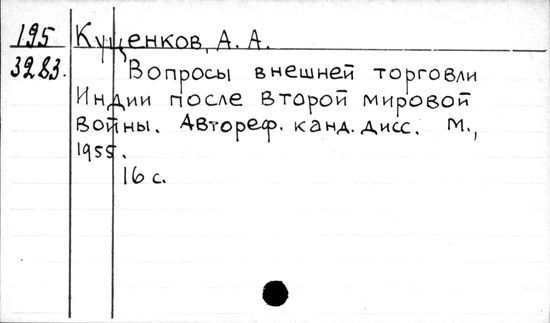 195 Куценков, А. А.
3283. Вопросы внешней торговли
Индии после второй мировой
войны. Автореф. канд. дисс. М.,
1955.
16 с.